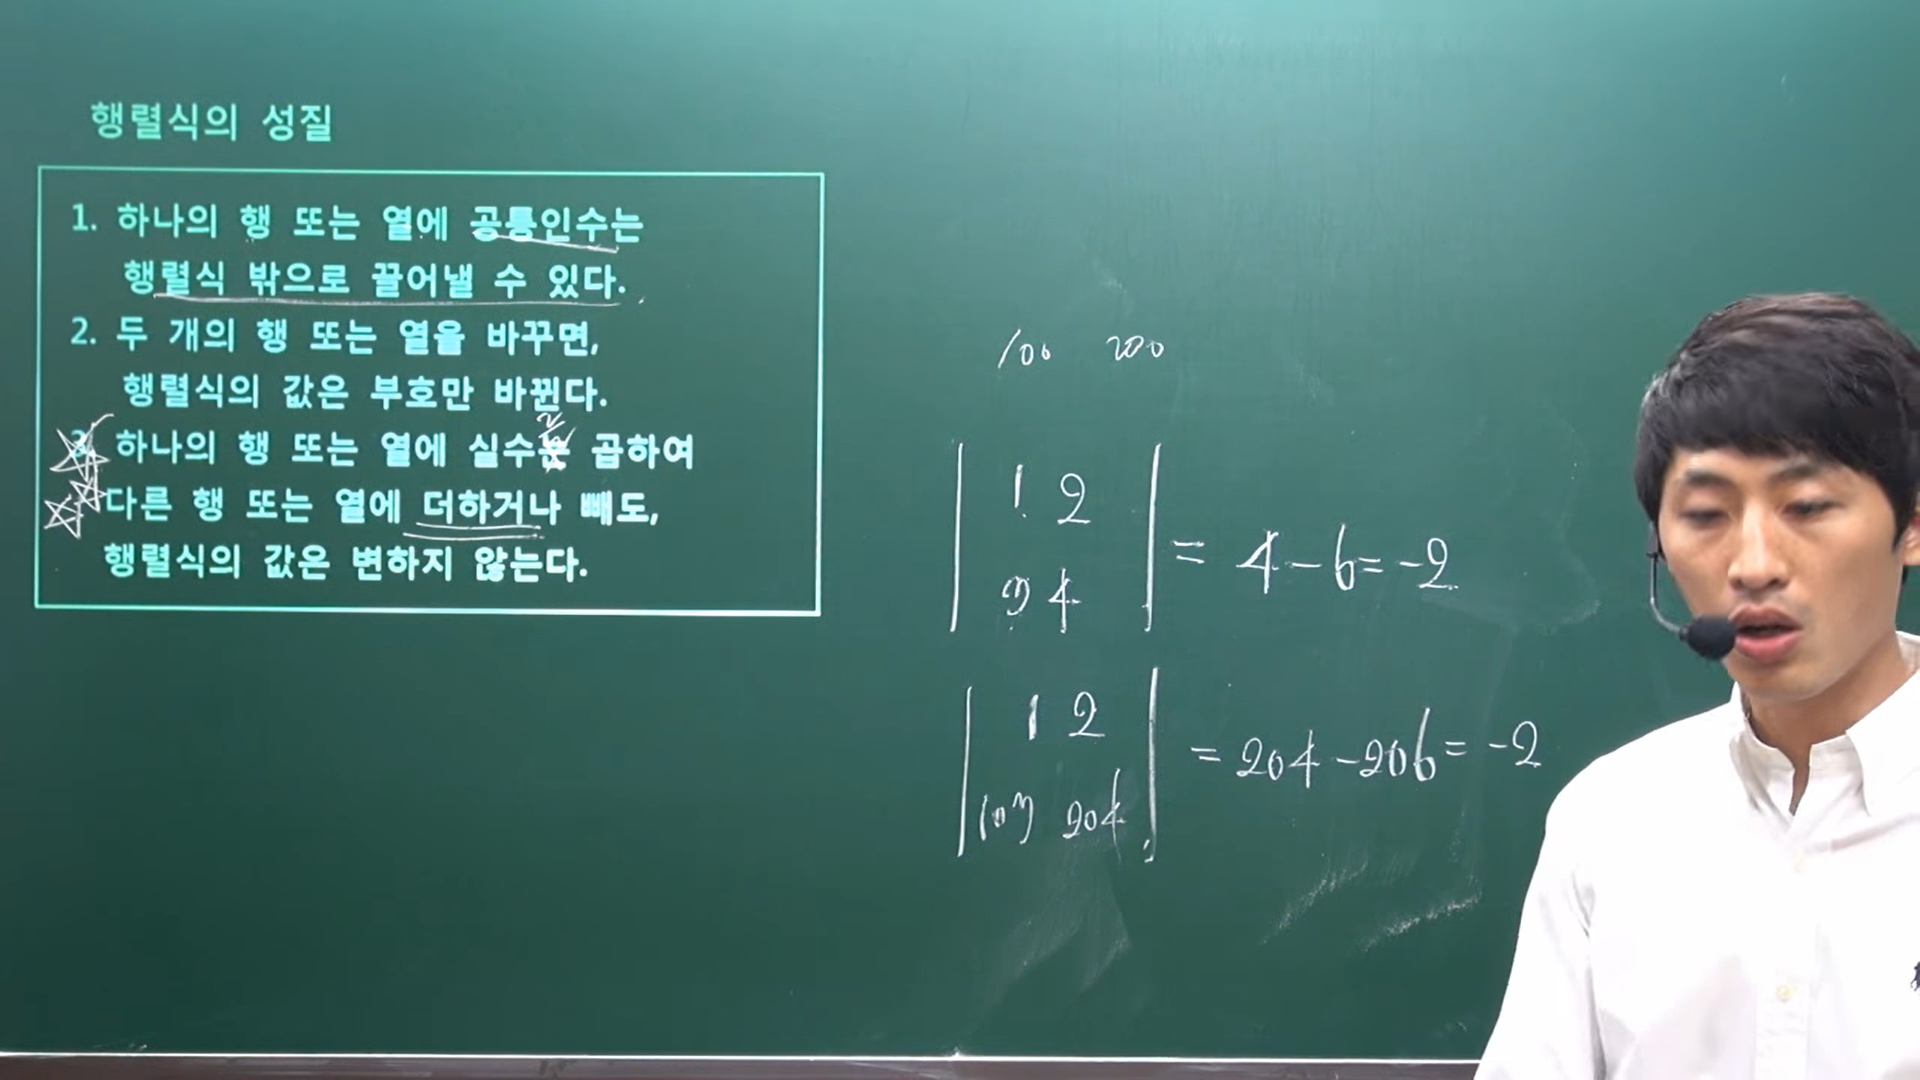 행렬식의 성질
1. 하나의 행 또는 열에 공통인수는
행렬식 밖으로 끌어낼 수 있다.
2. 두 개의 행 또는 열을 바꾸면,
행렬식의 값은 부호만 바뀐다.
3. 하나의 행 또는 열에 실수를 곱하여
다른 행 또는 열에 더하거나 빼도,
행렬식의 값은 변하지 않는다.
100 200
1 2
3 4
= 4-6=-2
1 2
103 204
= 204-206=-2